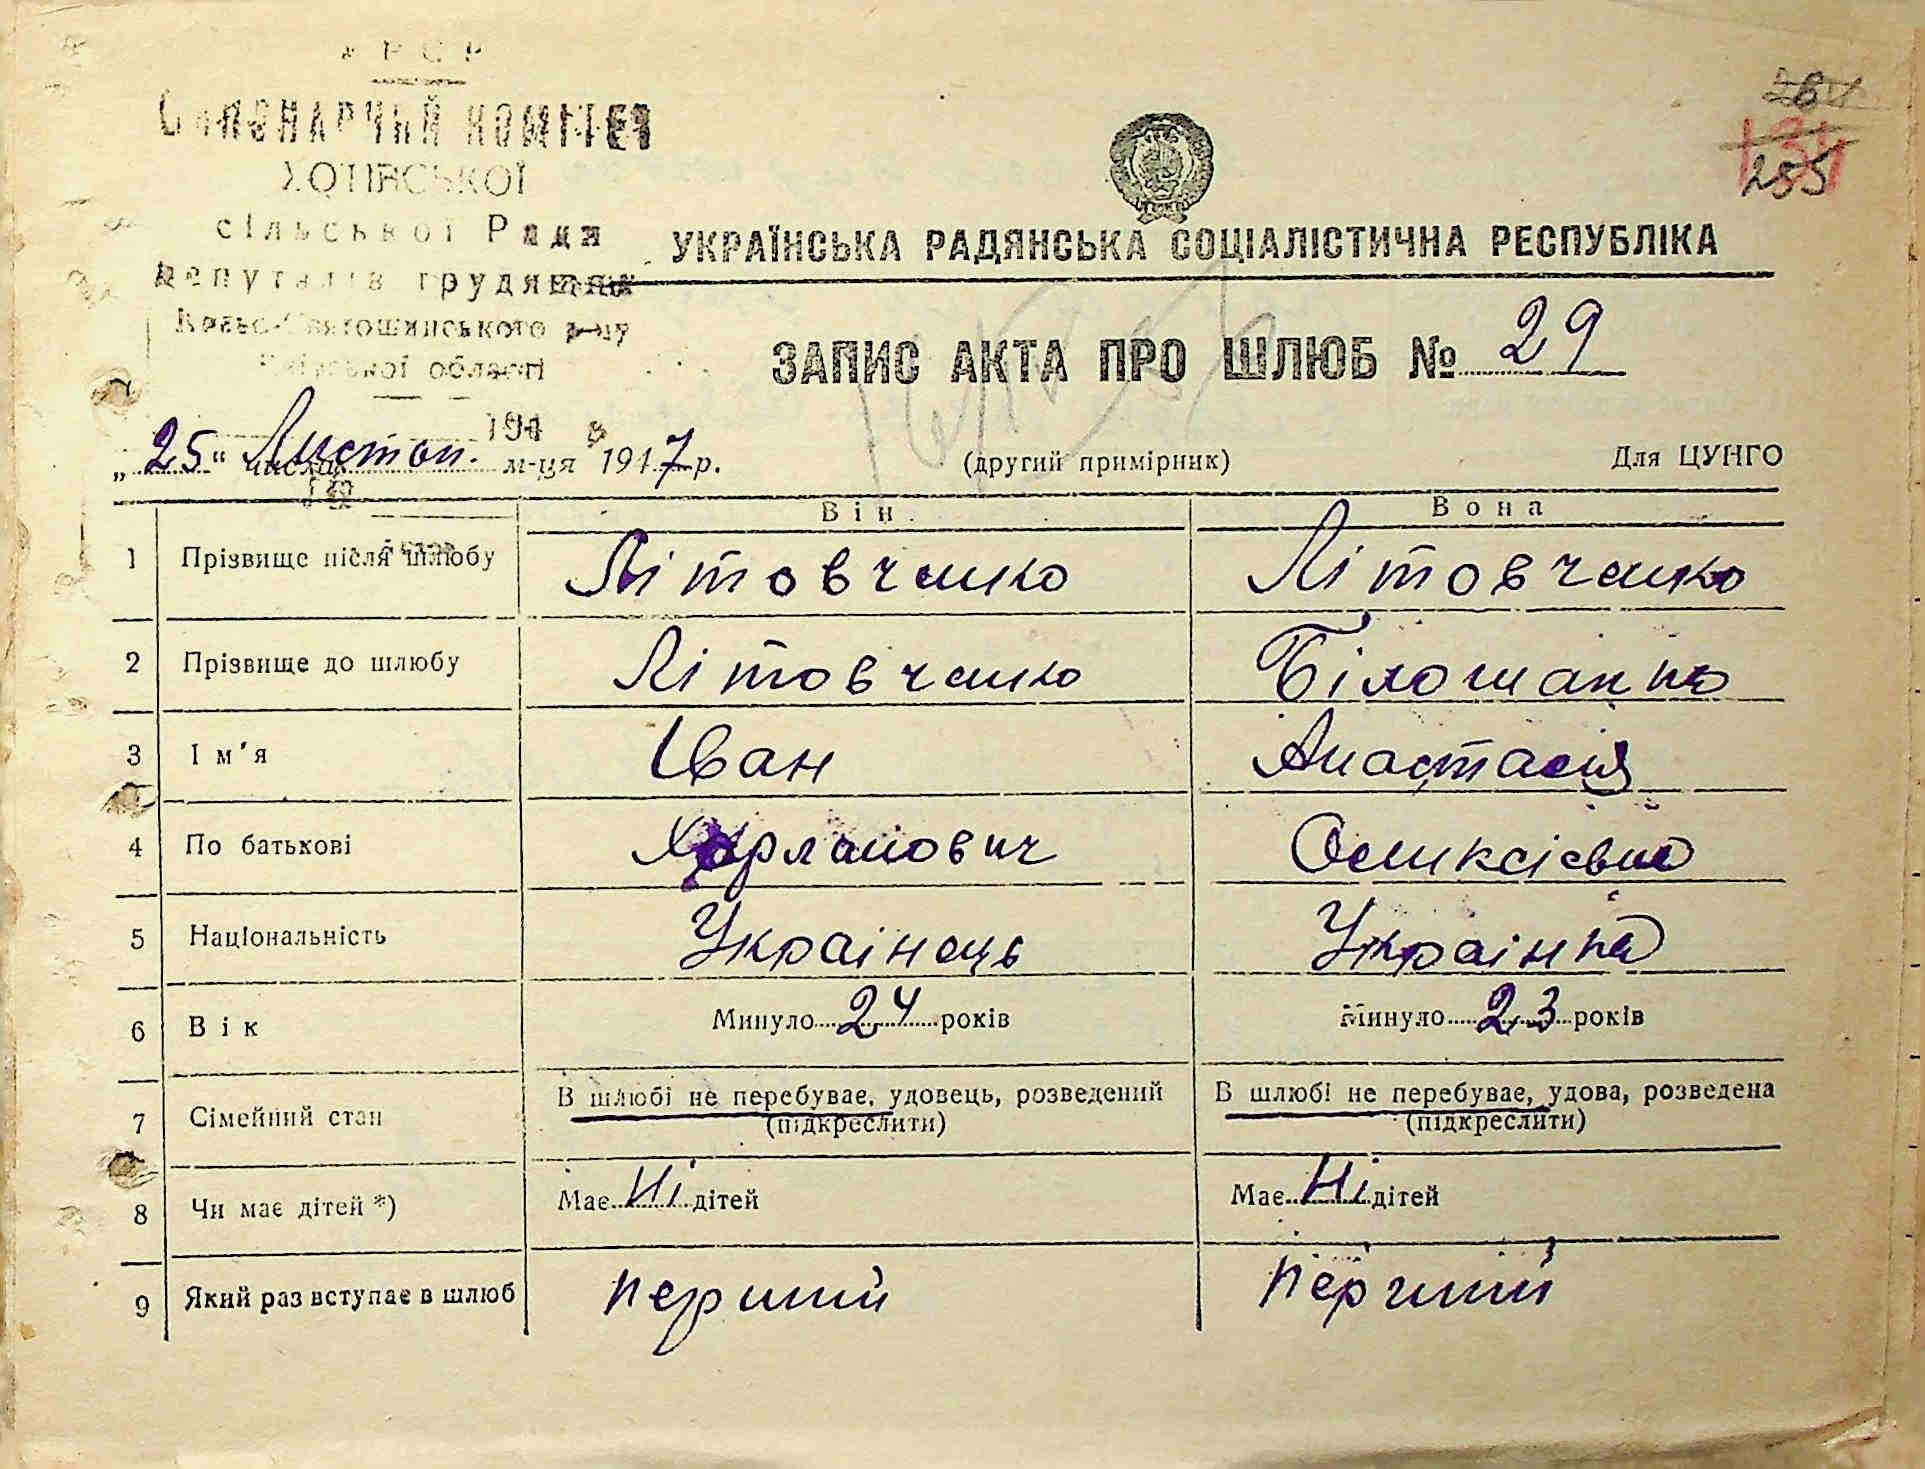 УРСР
Виконарчий комітет
ХОТІВСЬКОЇ
сільської Ради
депутатів трудящих
Києво-Святошинського р-ну
Київської області
284
134
255
УКРАЇНСЬКА РАДЯНСЬКА СОЦІАЛІСТИЧНА РЕСПУБЛІКА
ЗАПИС АКТА ПРО ШЛЮБ № 29
194 р.
„25" числа Листоп. м-ця 1947 р.
(другий примірник)
Для ЦУНГО
Він
Вона
1 Прізвище після шлюбу Літовченко Літовченко
2 Прізвище до шлюбу Літовченко Білошапко
3 Ім'я Іван Анастасія
4 По батькові Харланович Олексієвна
5 Національність Украінець Украінка
6 Вік Минуло 24 років Минуло 23 років
7 Сімейний стан В шлюбі не перебуває, удовець, розведений В шлюбі не перебуває, удова, розведена
(підкреслити) (підкреслити)
8 Чи має дітей *) Має Ні дітей Має Ні дітей
9 Який раз вступає в шлюб перший перший